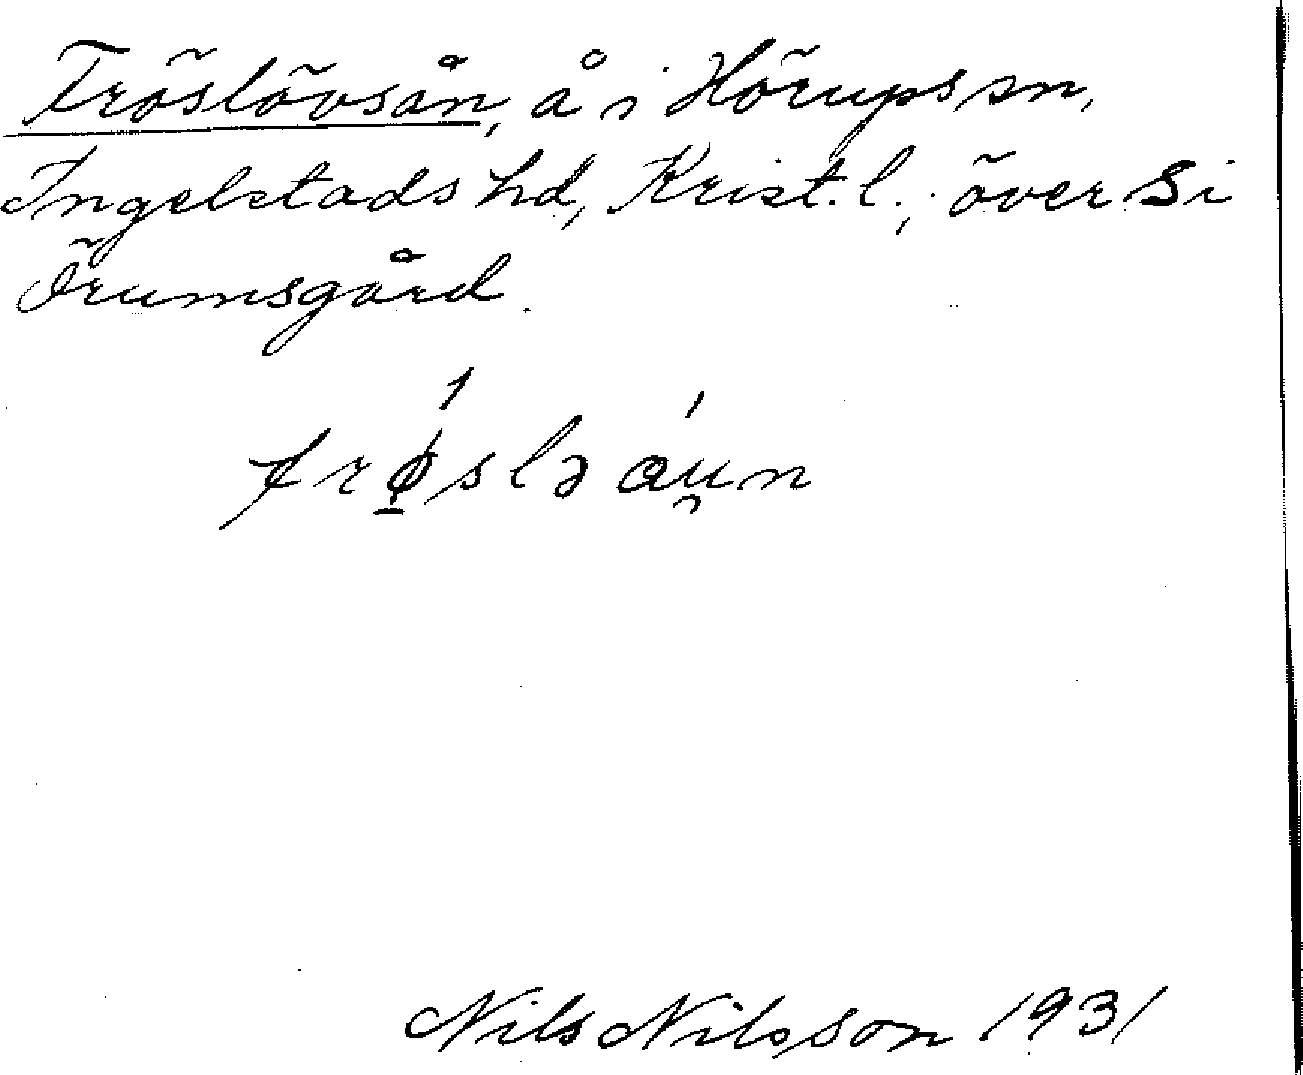 Fröslövsån, å i Hörups sn,
Ingelstads hd, Krist. l.; över Si
Örumsgård.
frǿ̠slə áu̯n
Nils Nilsson 1931